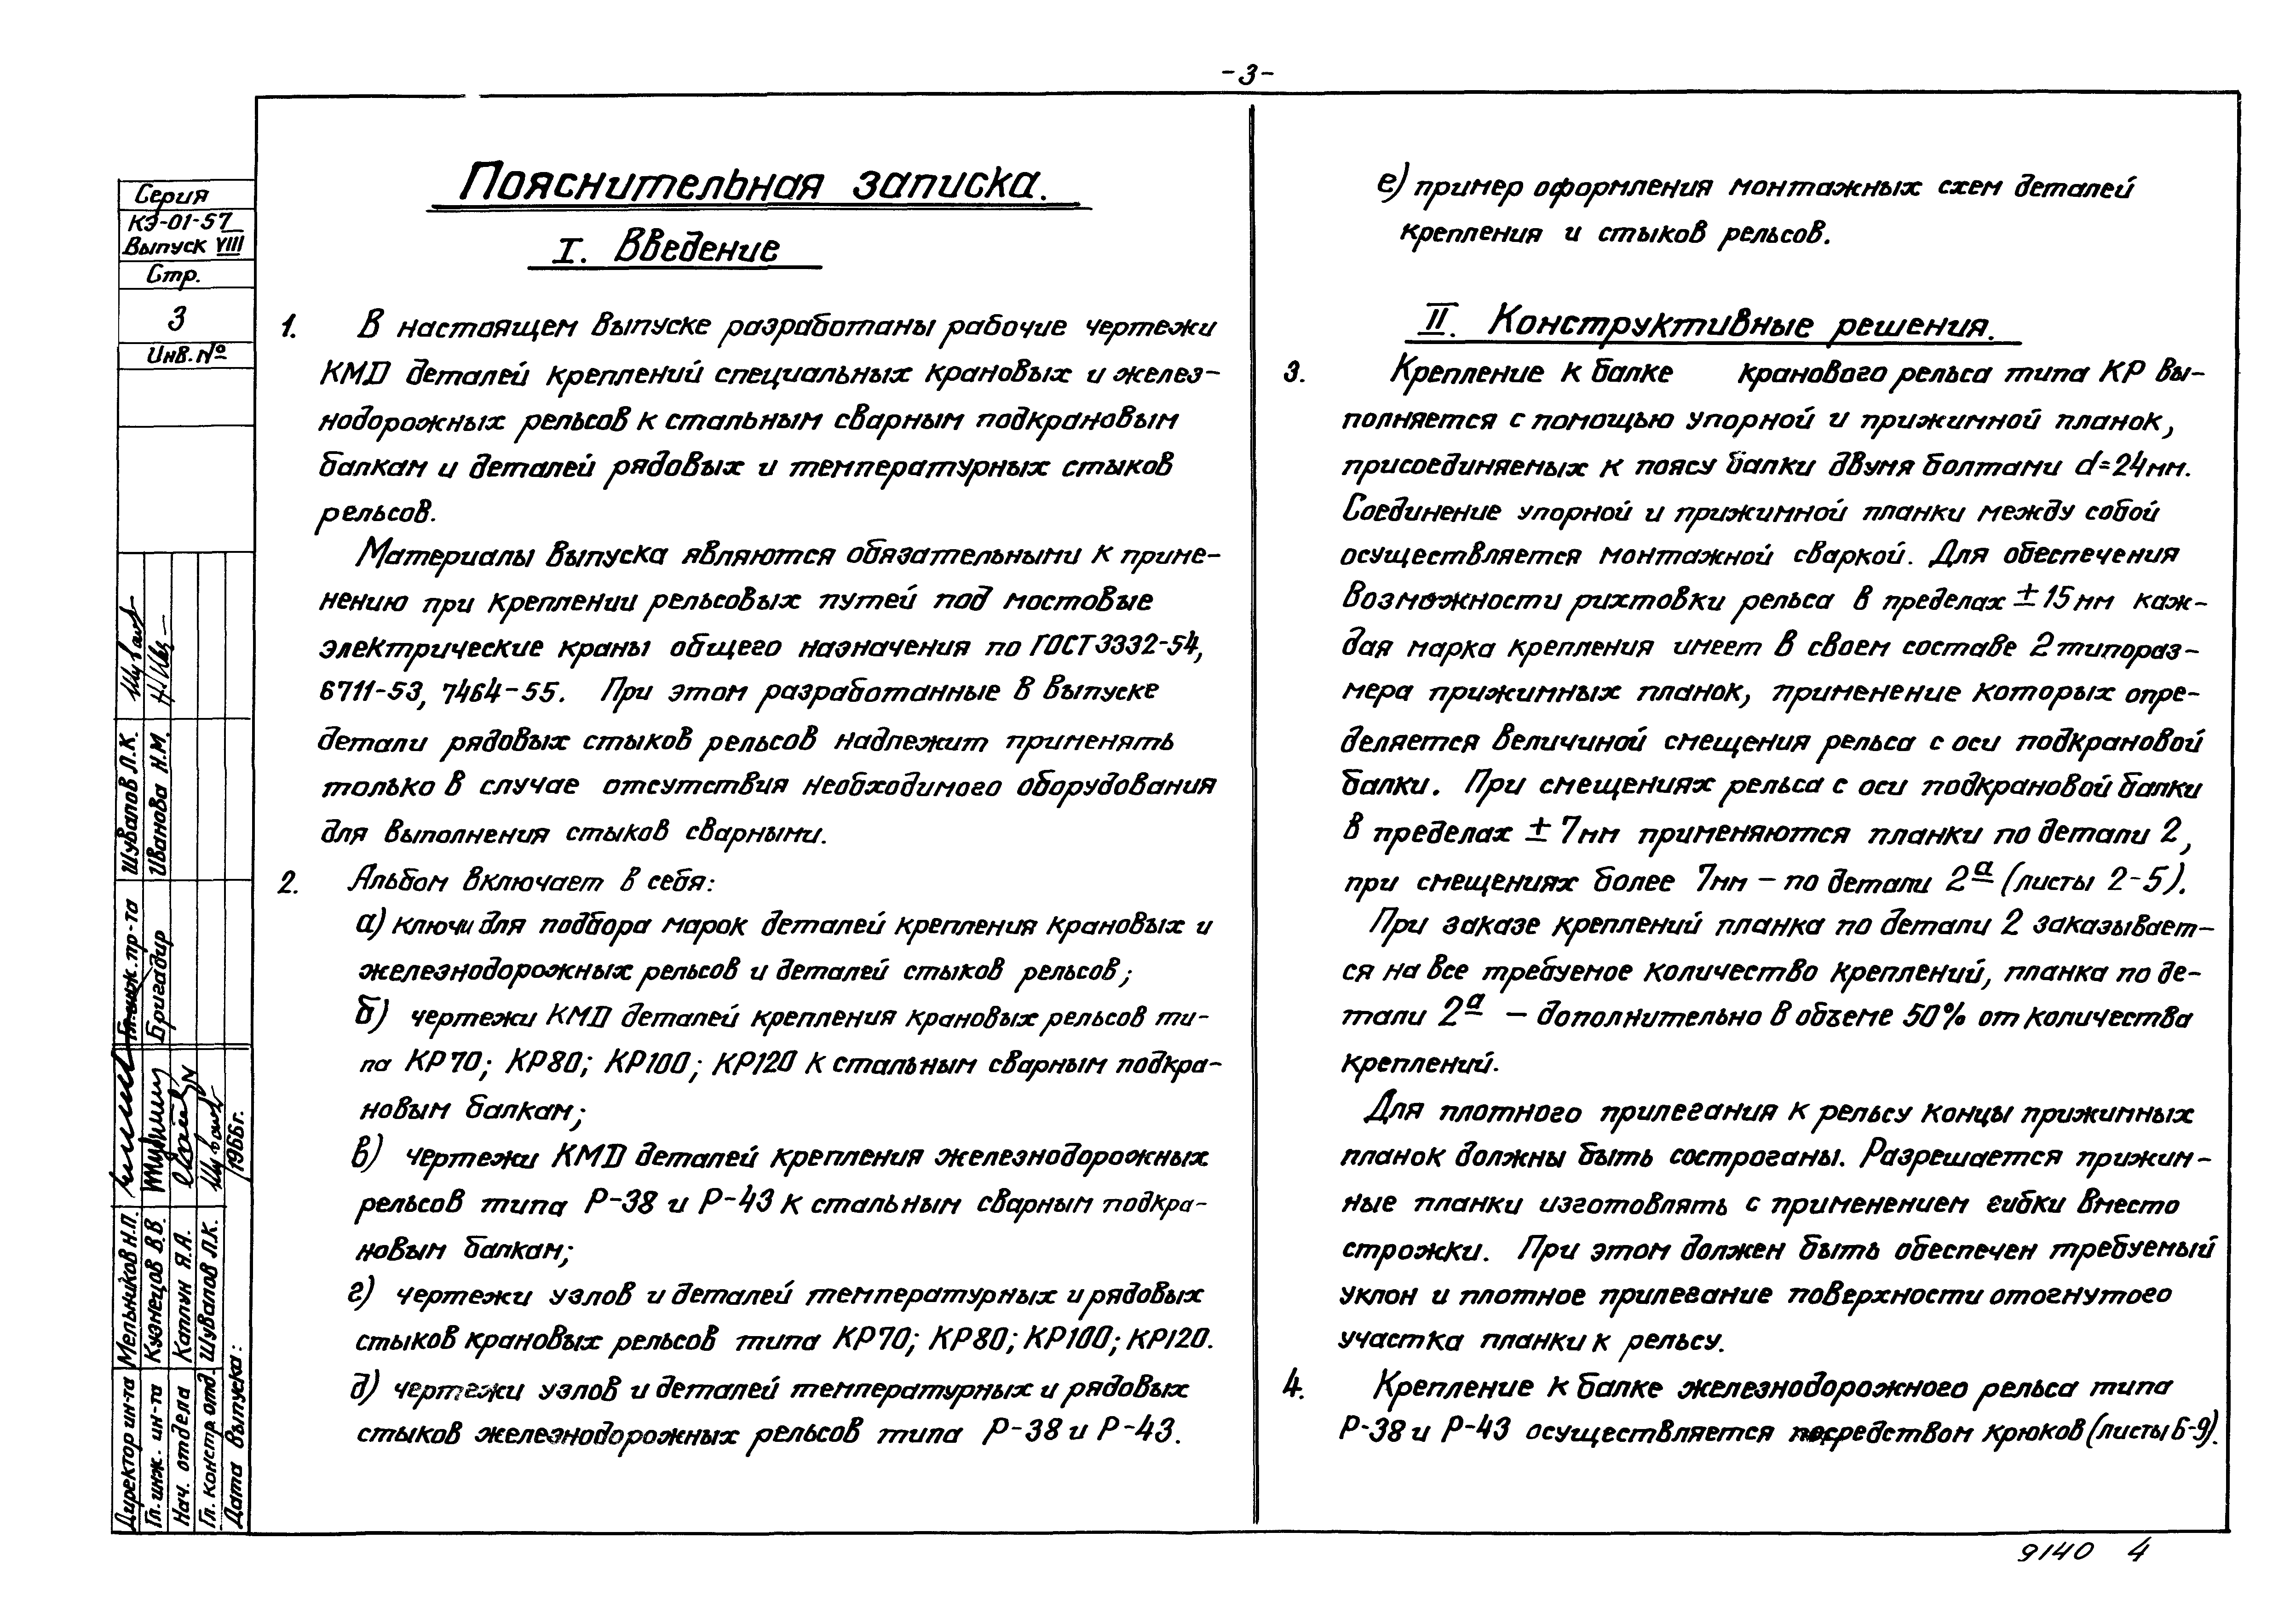 -3-
Серия
КЭ-01-57
Выпуск VIII
Стр.
3
Инв. №
Шувалов Л.К.
Иванова Н.М.
Гл. инж. пр-та
Бригадир
Мельников Н.П.
Кузнецов В.В.
Каплун Я.А.
Шувалов Л.К.
1966г.
Директор ин-та
Гл. инж. ин-та
Нач. отдела
Гл. констр. отд.
Дата выпуска:
Пояснительная записка.
I. Введение
1. В настоящем выпуске разработаны рабочие чертежи
КМД деталей креплений специальных крановых и желез-
нодорожных рельсов к стальным сварным подкрановым
балкам и деталей рядовых и температурных стыков
рельсов.
Материалы выпуска являются обязательными к приме-
нению при креплении рельсовых путей под мостовые
электрические краны общего назначения по ГОСТ 3332-54,
6711-53, 7464-55. При этом разработанные в выпуске
детали рядовых стыков рельсов надлежит применять
только в случае отсутствия необходимого оборудования
для выполнения стыков сварными.
2. Альбом включает в себя:
а) ключи для подбора марок деталей крепления крановых и
железнодорожных рельсов и деталей стыков рельсов;
б) чертежи КМД деталей крепления крановых рельсов ти-
па КР70; КР80; КР100; КР120 к стальным сварным подкра-
новым балкам;
в) чертежи КМД деталей крепления железнодорожных
рельсов типа Р-38 и Р-43 к стальным сварным подкра-
новым балкам;
г) чертежи узлов и деталей температурных и рядовых
стыков крановых рельсов типа КР70; КР80; КР100; КР120.
д) чертежи узлов и деталей температурных и рядовых
стыков железнодорожных рельсов типа Р-38 и Р-43.
е) пример оформления монтажных схем деталей
крепления и стыков рельсов.
II. Конструктивные решения.
3. Крепление к балке кранового рельса типа КР вы-
полняется с помощью упорной и прижимной планок,
присоединяемых к поясу балки двумя болтами d=24мм.
Соединение упорной и прижимной планки между собой
осуществляется монтажной сваркой. Для обеспечения
возможности рихтовки рельса в пределах ±15мм каж-
дая марка крепления имеет в своем составе 2 типораз-
мера прижимных планок, применение которых опре-
деляется величиной смещения рельса с оси подкрановой
балки. При смещениях рельса с оси подкрановой балки
в пределах ±7мм применяются планки по детали 2,
при смещениях более 7мм – по детали 2а (листы 2-5).
При заказе креплений планка по детали 2 заказывает-
ся на все требуемое количество креплений, планка по де-
тали 2а – дополнительно в объеме 50% от количества
креплений.
Для плотного прилегания к рельсу концы прижимных
планок должны быть состроганы. Разрешается прижим-
ные планки изготовлять с применением гибки вместо
строжки. При этом должен быть обеспечен требуемый
уклон и плотное прилегание поверхности отогнутого
участка планки к рельсу.
4. Крепление к балке железнодорожного рельса типа
Р-38 и Р-43 осуществляется посредством крюков (листы 6-9).
9140 4